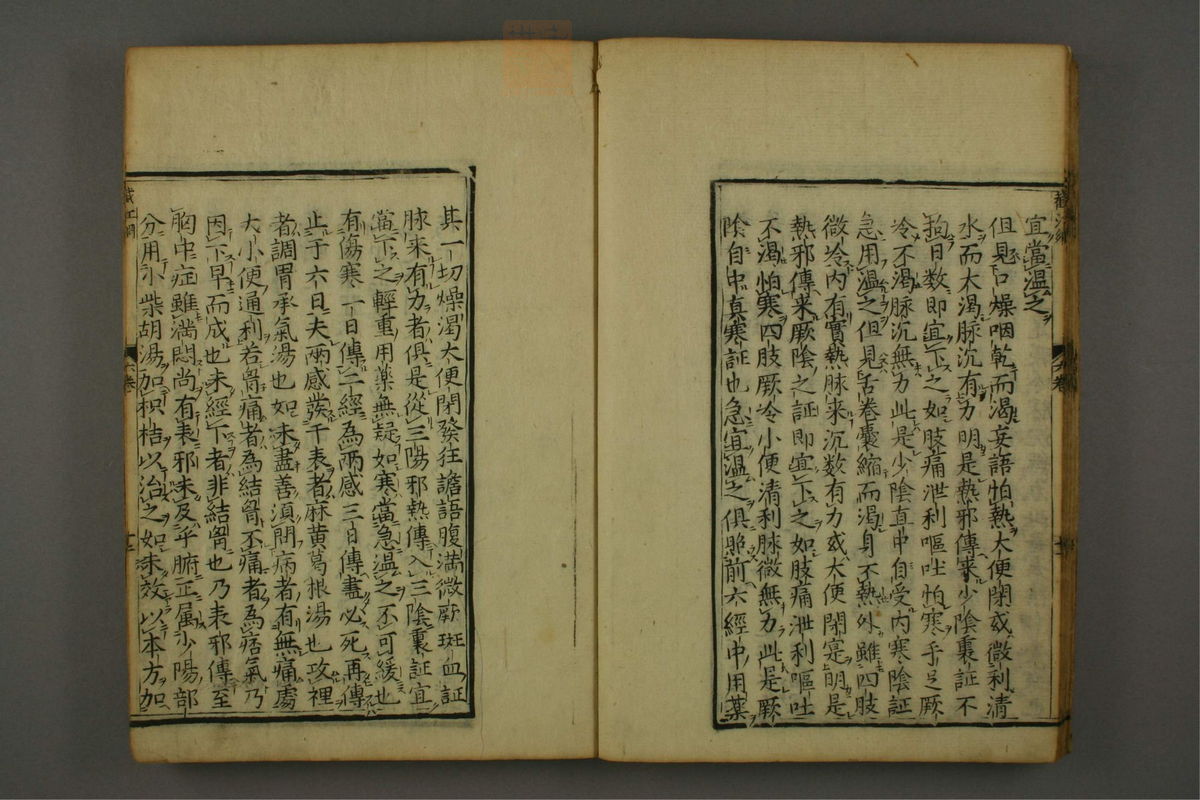 宜當温之
但見口燥咽乾而渴妄語怕熱大便閉或微利清
水而大渴脉沉有力明是熱邪傳來少陰裏証不
拘日数即宜下之如肢痛泄利嘔吐怕寒手足厥
冷不渴脉沉無力此是少陰直中自受内寒陰証
急用温之但見舌卷囊縮而渴身不熱外雖四肢
微冷内有實熱脉來沉数有力或大便閉寔明是
熱邪傳来厥陰之証即宜下之如肢痛泄利嘔吐
不渴怕寒四肢厥冷小便清利脉微無力此是厥
陰自中真寒証也急宜温之俱照前六經中用薬
其一切燥渴大便閉發狂譫語腹満微厥斑血証
脉来有力者俱是從三陽邪熱傳入三陰裏証宜
當下之輕重用藥無疑如寒當急温之不可緩也
有傷寒一日傳二經為兩感三日傳盡必死再傳
止于六日夫兩感發于表者麻黄葛根湯也攻裡
者調胃承氣湯也如未盡善須問病者有無痛處
大小便通利若胷痛者為結胷不痛者為痞氣乃
因下早而成也未經下者非結胷也乃表邪傳至
胸中症雖満悶尚有表邪未及乎腑正属少陽部
分用小柴胡湯加枳桔以治之如未效以本方加
六卷